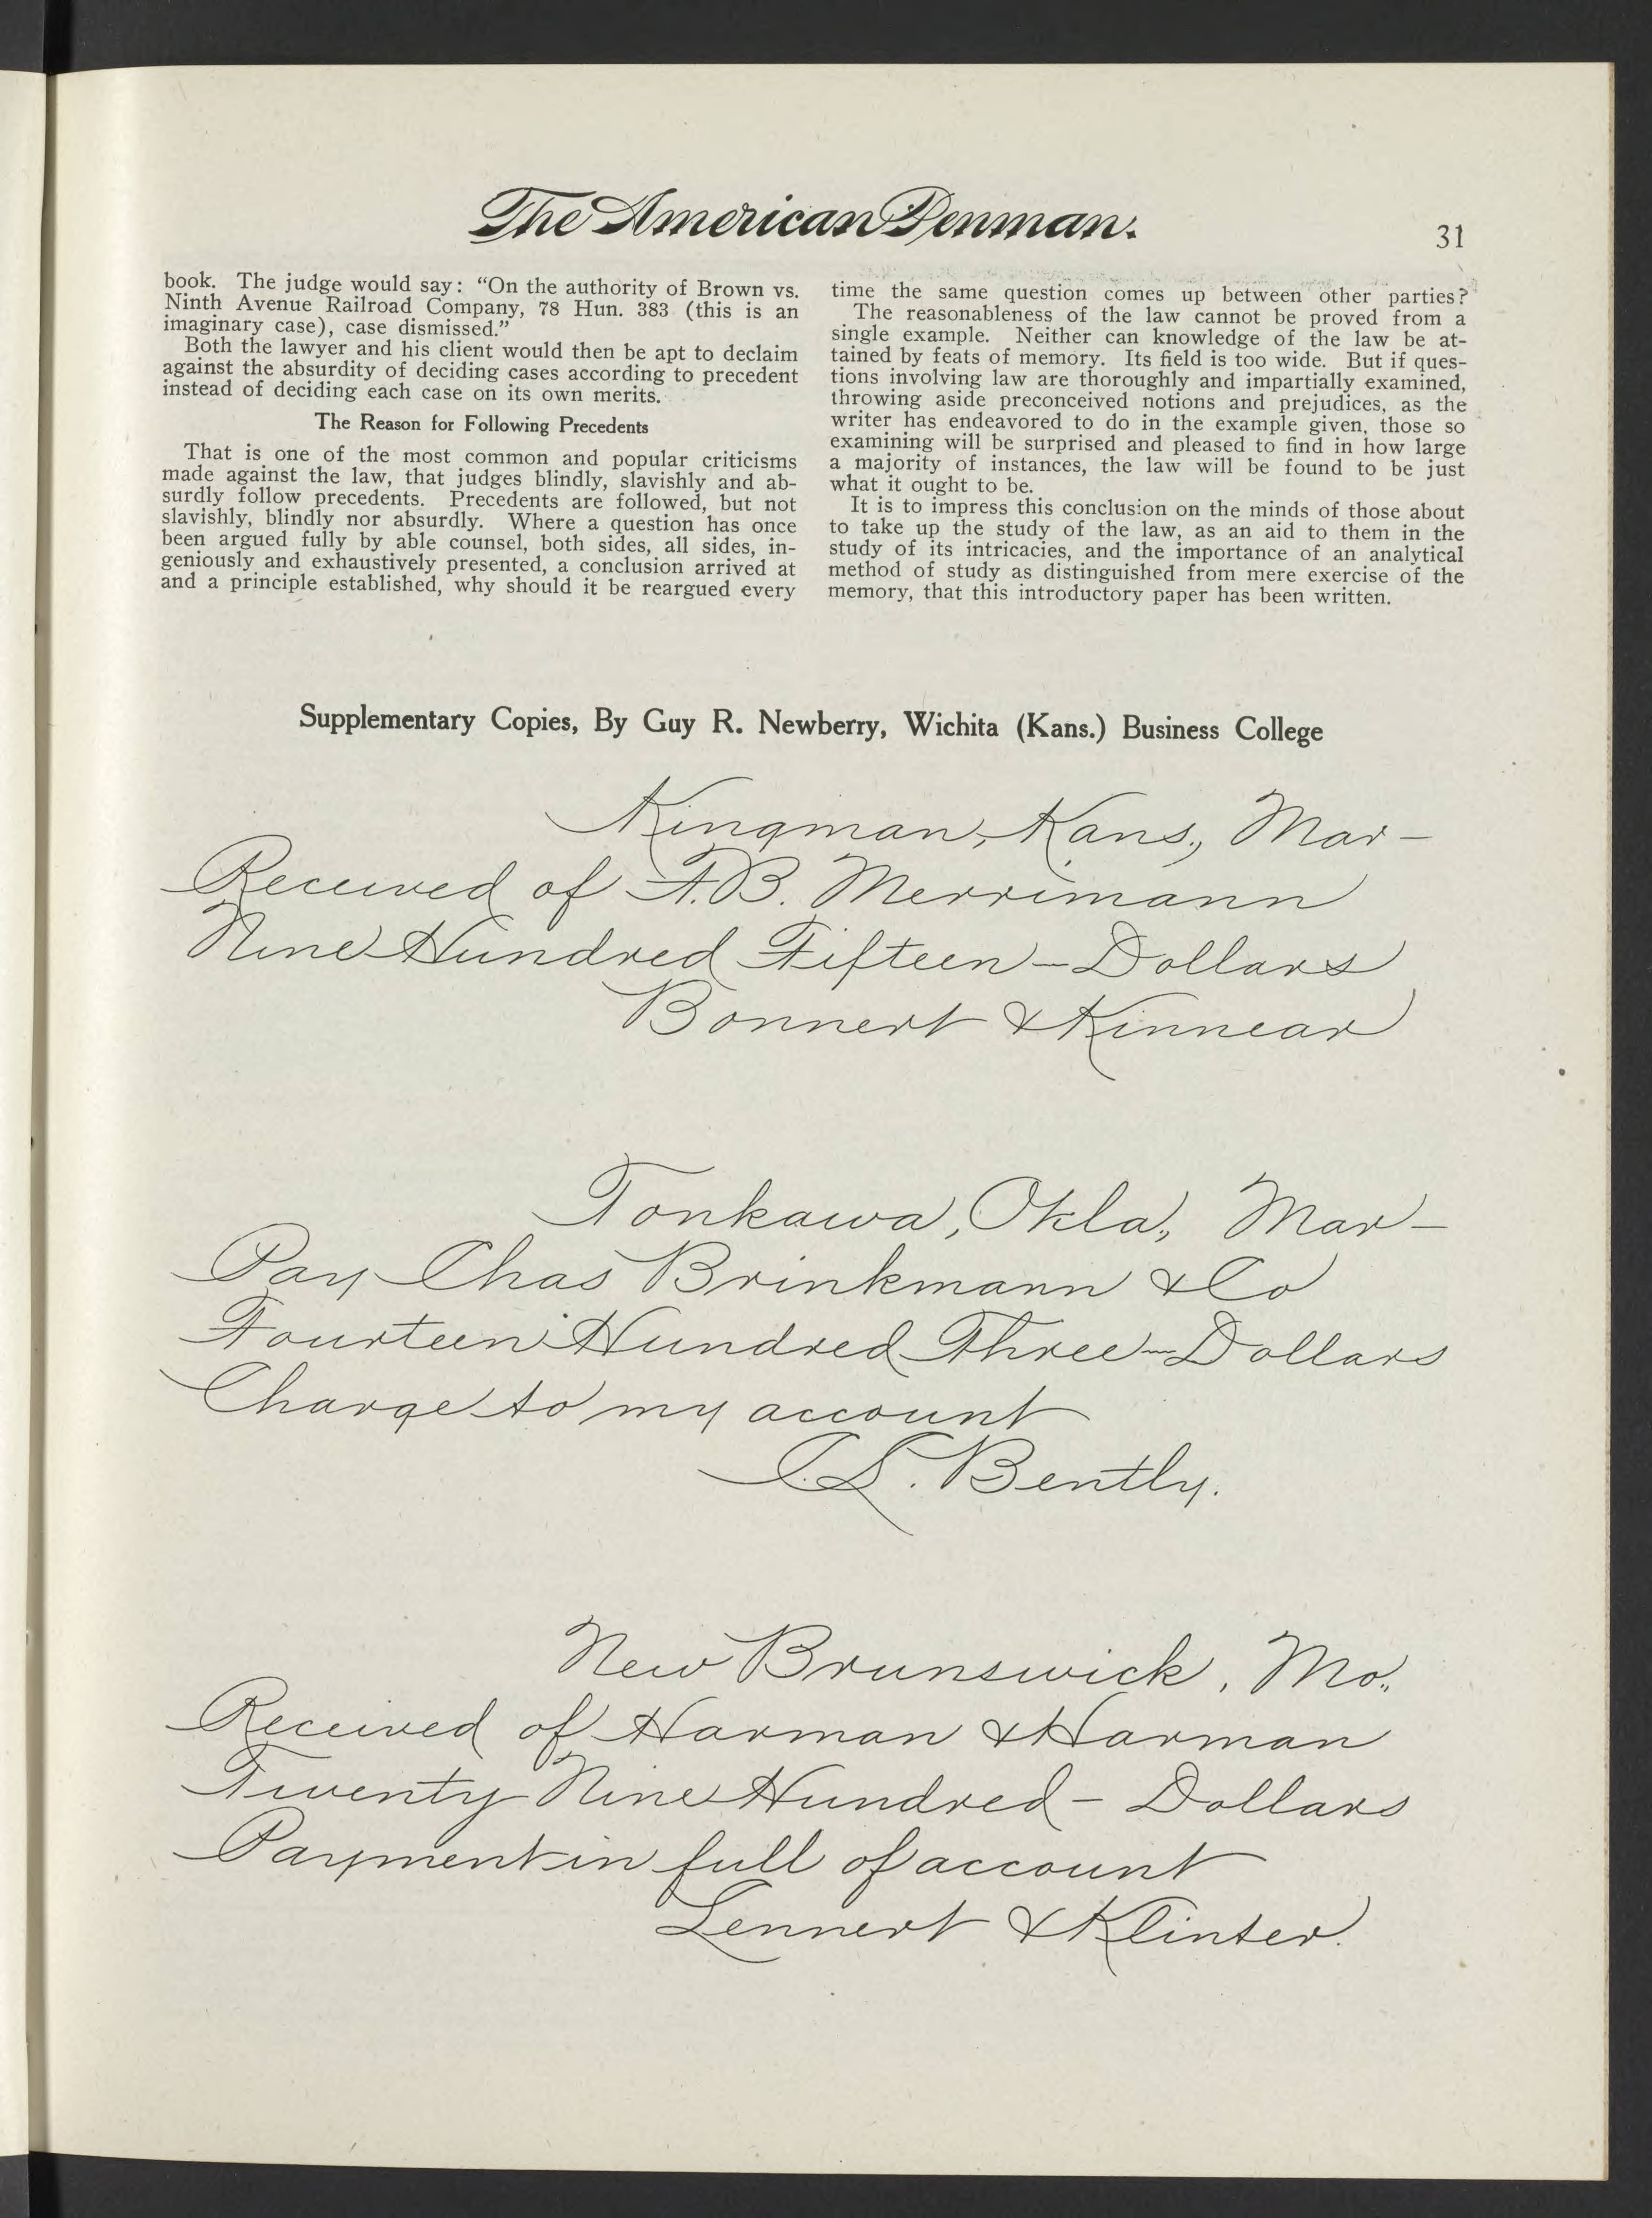 The American Penman.
31
book. The judge would say: “On the authority of Brown vs.
Ninth Avenue Railroad Company, 78 Hun. 383 (this is an
imaginary case), case dismissed.”
Both the lawyer and his client would then be apt to declaim
against the absurdity of deciding cases according to precedent
instead of deciding each case on its own merits.
The Reason for Following Precedents
That is one of the most common and popular criticisms
made against the law, that judges blindly, slavishly and ab-
surdly follow precedents. Precedents are followed, but not
slavishly, blindly nor absurdly. Where a question has once
been argued fully by able counsel, both sides, all sides, in-
geniously and exhaustively presented, a conclusion arrived at
and a principle established, why should it be reargued every
time the same question comes up between other parties?
The reasonableness of the law cannot be proved from a
single example. Neither can knowledge of the law be at-
tained by feats of memory. Its field is too wide. But if ques-
tions involving law are thoroughly and impartially examined,
throwing aside preconceived notions and prejudices, as the
writer has endeavored to do in the example given, those so
examining will be surprised and pleased to find in how large
a majority of instances, the law will be found to be just
what it ought to be.
It is to impress this conclusion on the minds of those about
to take up the study of the law, as an aid to them in the
study of its intricacies, and the importance of an analytical
method of study as distinguished from mere exercise of the
memory, that this introductory paper has been written.
Supplementary Copies, By Guy R. Newberry, Wichita (Kans.) Business College
Kingman, Kans., Mar—
Received of F.B. Merrimann
Nine Hundred Fifteen—Dollars
Bonnert & Kinnear
Tonkawa, Okla., Mar—
Pay Chas Brinkmann & Co
Fourteen Hundred Three—Dollars
Charge to my account
C.S. Bently.
New Brunswick, Mo.,
Received of Harman & Harman
Twenty Nine Hundred — Dollars
Payment in full of account
Lennert & Klinter.